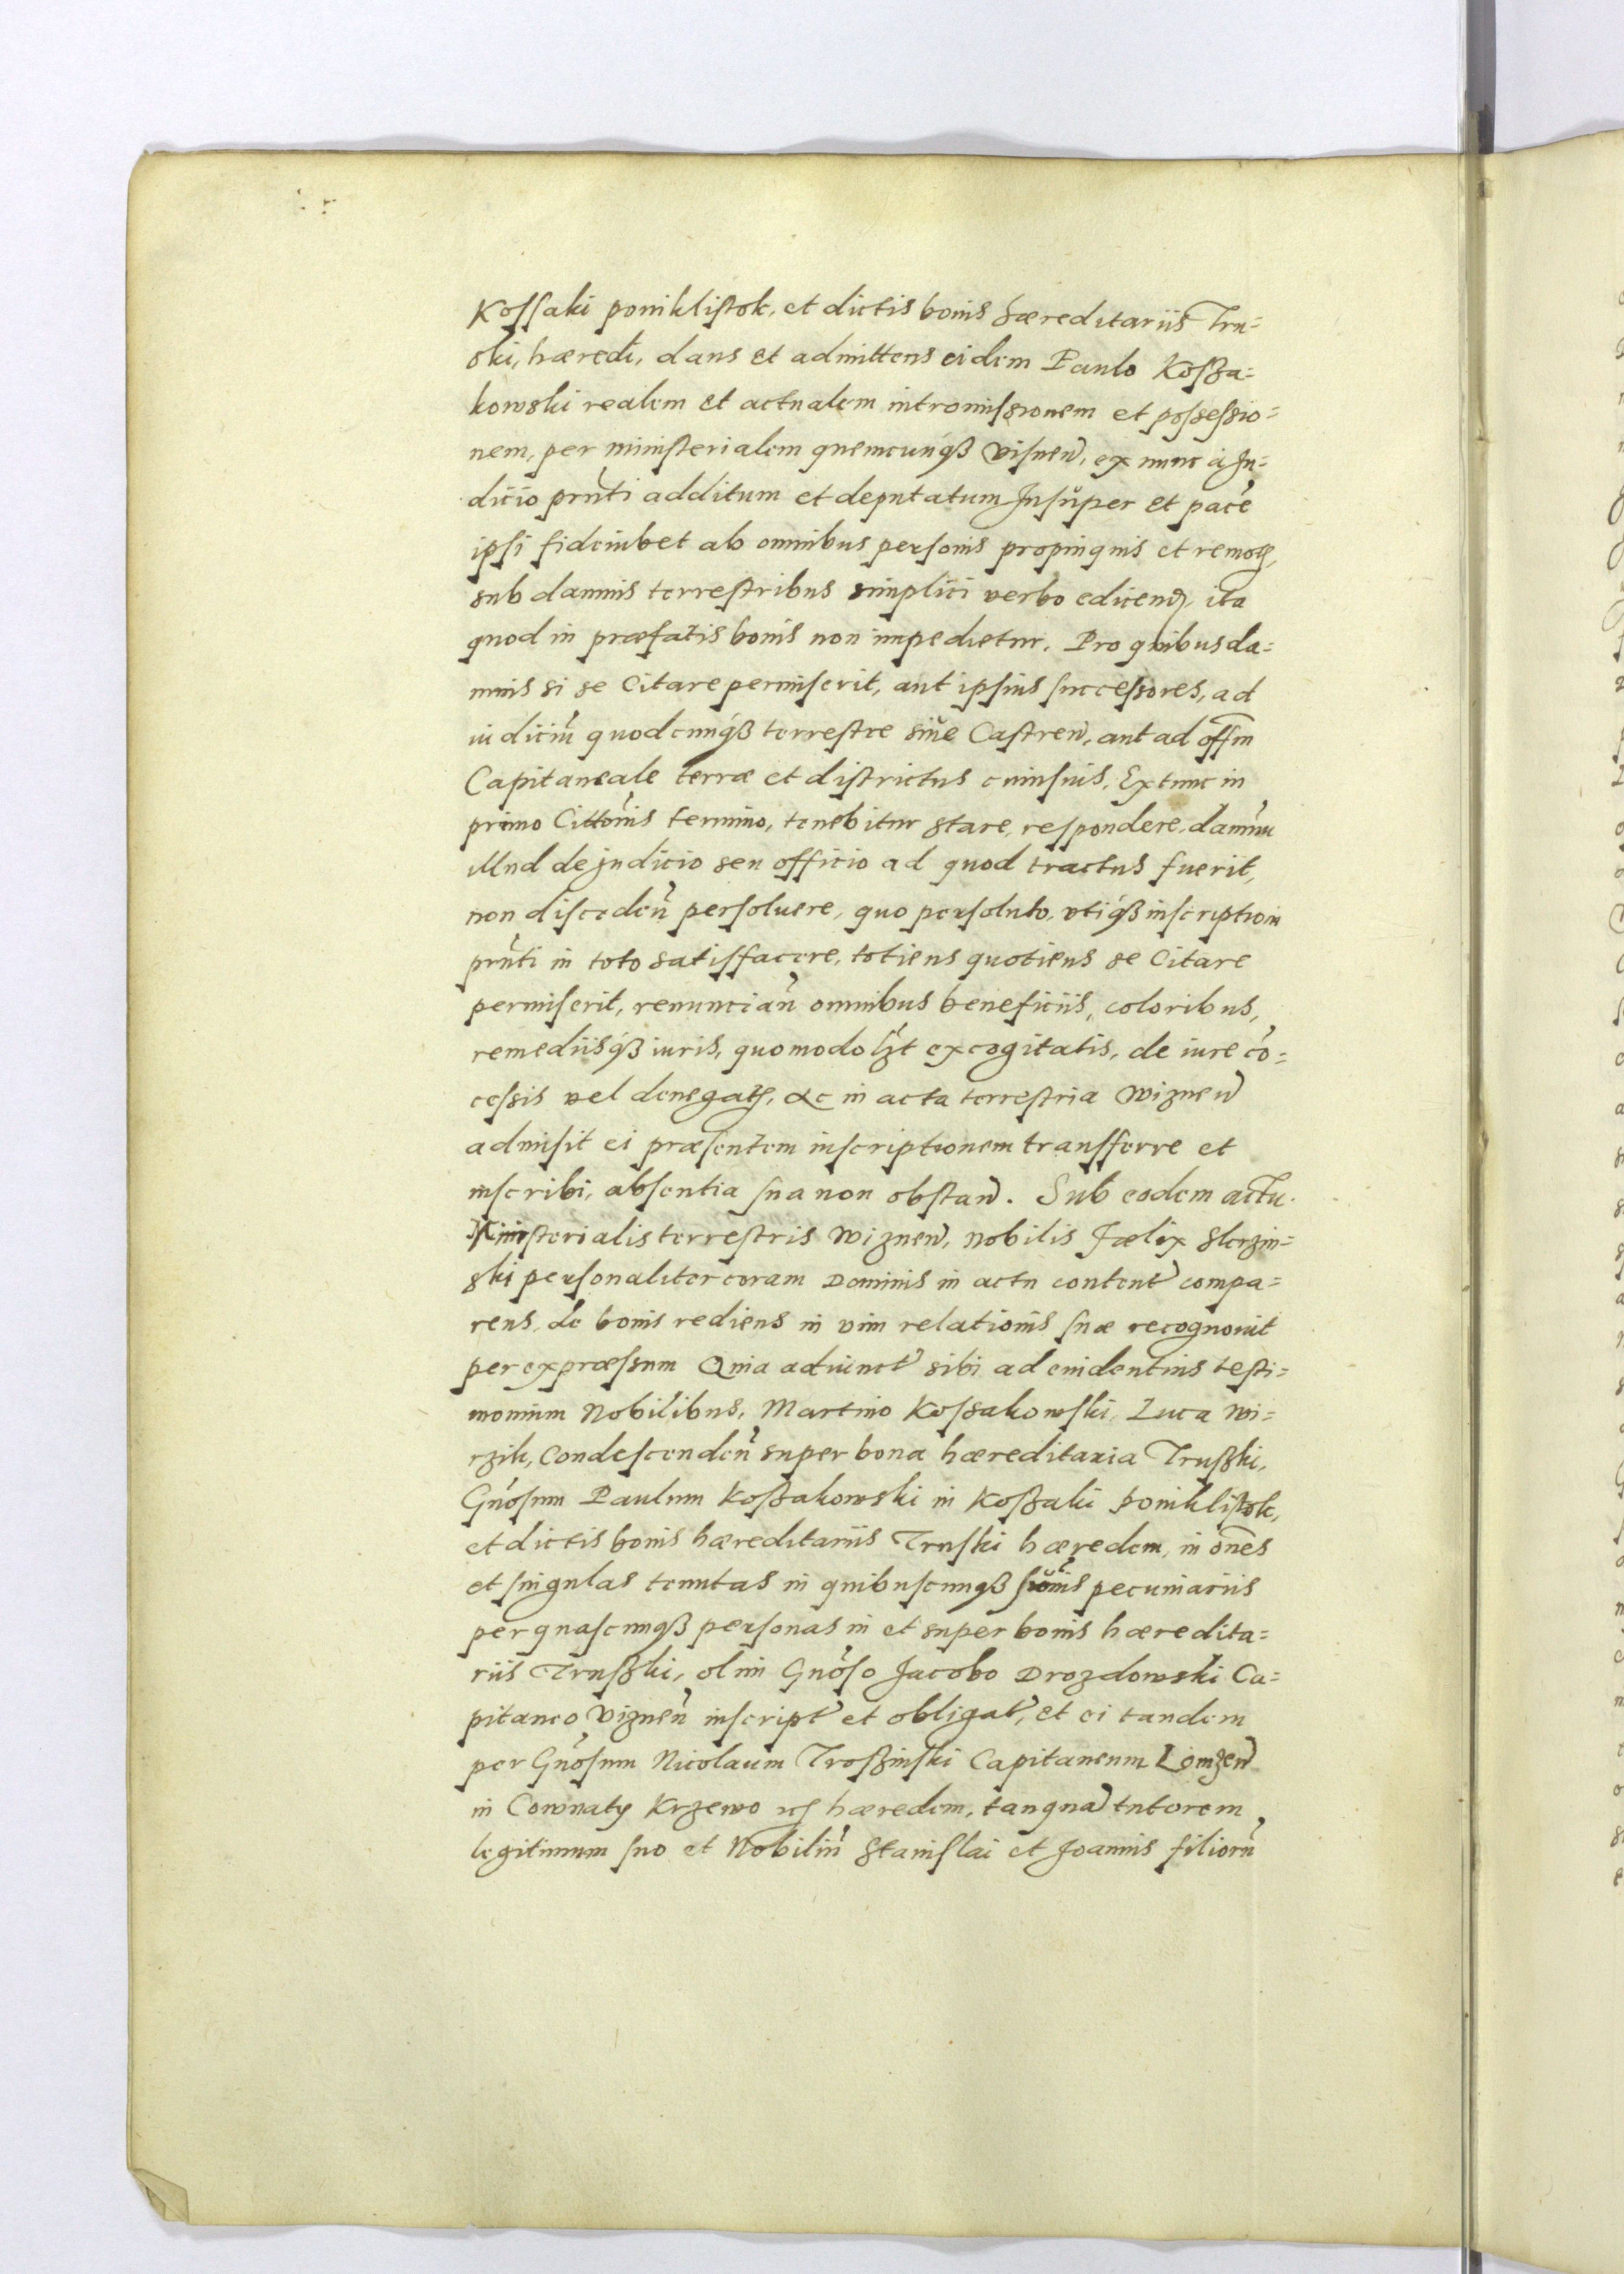 Kossaki ponikłistok, et dictis bonis hæreditariis Tru=
ski, hæredi, dans et admittens eidem Paulo Kossa=
kowski realem et actualem intromissionem et possessio=
nem, per ministerialem quemcunq3 Visnen, ex nunc à Ju=
dicio prnti additum et deputatum Insuper et pacē
ipsi fideiubet ab omnibus personis propinquis et remotis,
sub damnis terrestribus simplici verbo edicend, ita
quod in præfatis bonis non impedietur. Pro quibus da=
mnis si se Citare permiserit, aut ipsius successores, ad
iudiciū quodcunq3 terrestre siue Castren, aut ad offm
Capitaneale terræ et districtus cuiusuis. Extunc in
primo Cittonis termino, tenebitur stare, respondere, damnū
illud de judicio seu officio ad quod tractus fuerit,
non disceden persoluere, quo persoluto, vtiq3 inscriptioni
prnti in toto satisfacere, totiens quotiens se Citare
permiserit, renuncian omnibus beneficiis, coloribus,
remediisq3 iuris, quomodolꝫt excogitatis, de iure cō=
cessis vel denegatis, &c in acta terrestria Wiznen
admisit ei præsentem inscriptionem transferre et
inscribi, absentia sua non obstan. Sub eodem actu
Ministerialis terrestris Wiznen, nobilis Fælix Slerzin=
ski personaliter coram Dominis in actu content compa=
rens, de bonis rediens in vim relationis suæ recognouit
per expræssum Quia adiunct sibi ad euidentius testi=
monium Nobilibus, Martino Kossakowski, Luca Wi=
rzik, Condescenden super bona hæreditaria Truszki,
Gnosum Paulum Koszakowski in Koszaki ponikłistok,
et dictis bonis hæreditariis Truski hæredem, in ōnes
et singulas tenutas in quibuscunq3 sumīs pecuniariis
per quascunq3 personas in et super bonis hæredita=
riis Truszki, olim Gnoso Jacobo Drozdowski Ca=
pitaneo Viznen inscript et obligat, et ei tandem
per Gnosum Nicolaum Troszinski Capitaneum Lomzen
in Cownaty Krzewo &c hæredem, tanquā tutorem
legitimum suo et Nobiliū Stanislai et Joannis filiorū